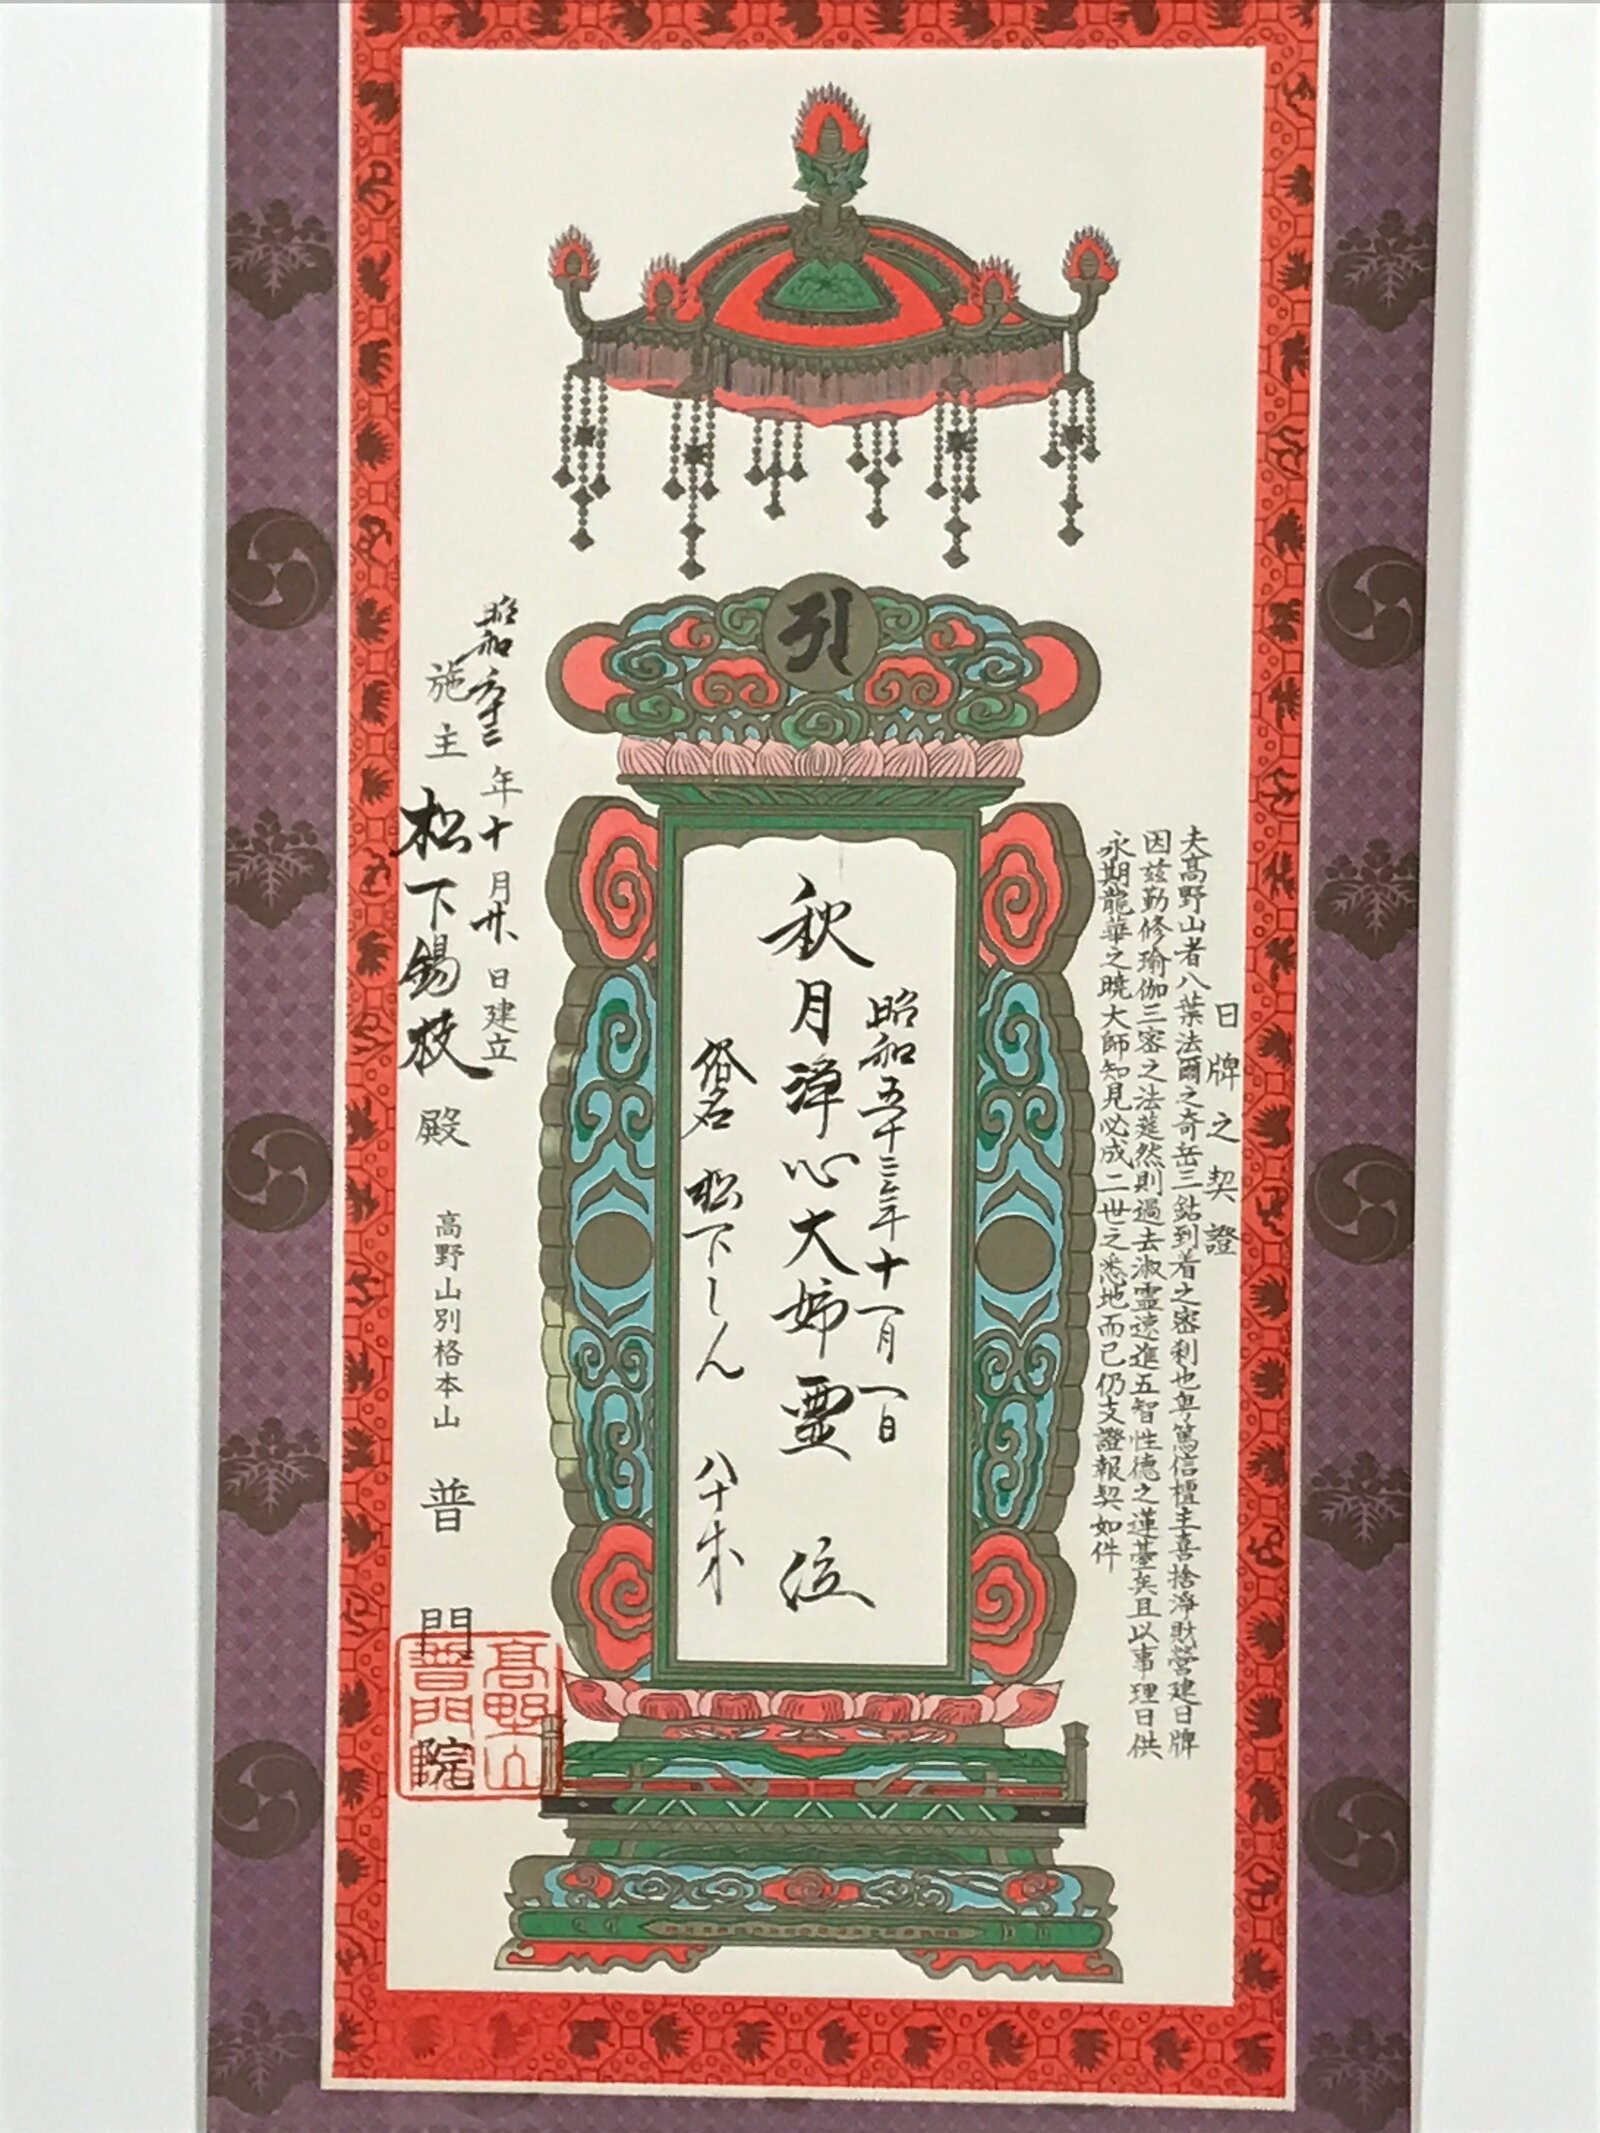 日牌之契證
夫高野山者八葉法爾之奇岳三鈷到着之密刹也粤篤信檀主喜捨淨財營建日牌
因茲勤修瑜伽三密之法莚然則過去淑霊速進五智性德之蓮基矣且以事理日供
永期龍華之曉大師知見必成二世之悉地而已仍支證報契如件
昭和五十三年十一月一日
秋月淨心大姉霊位
俗名 松下しん 八十才
年十月廿日建立
施主 松下錫枝殿 高野山別格本山 普門院
高野山
普門院